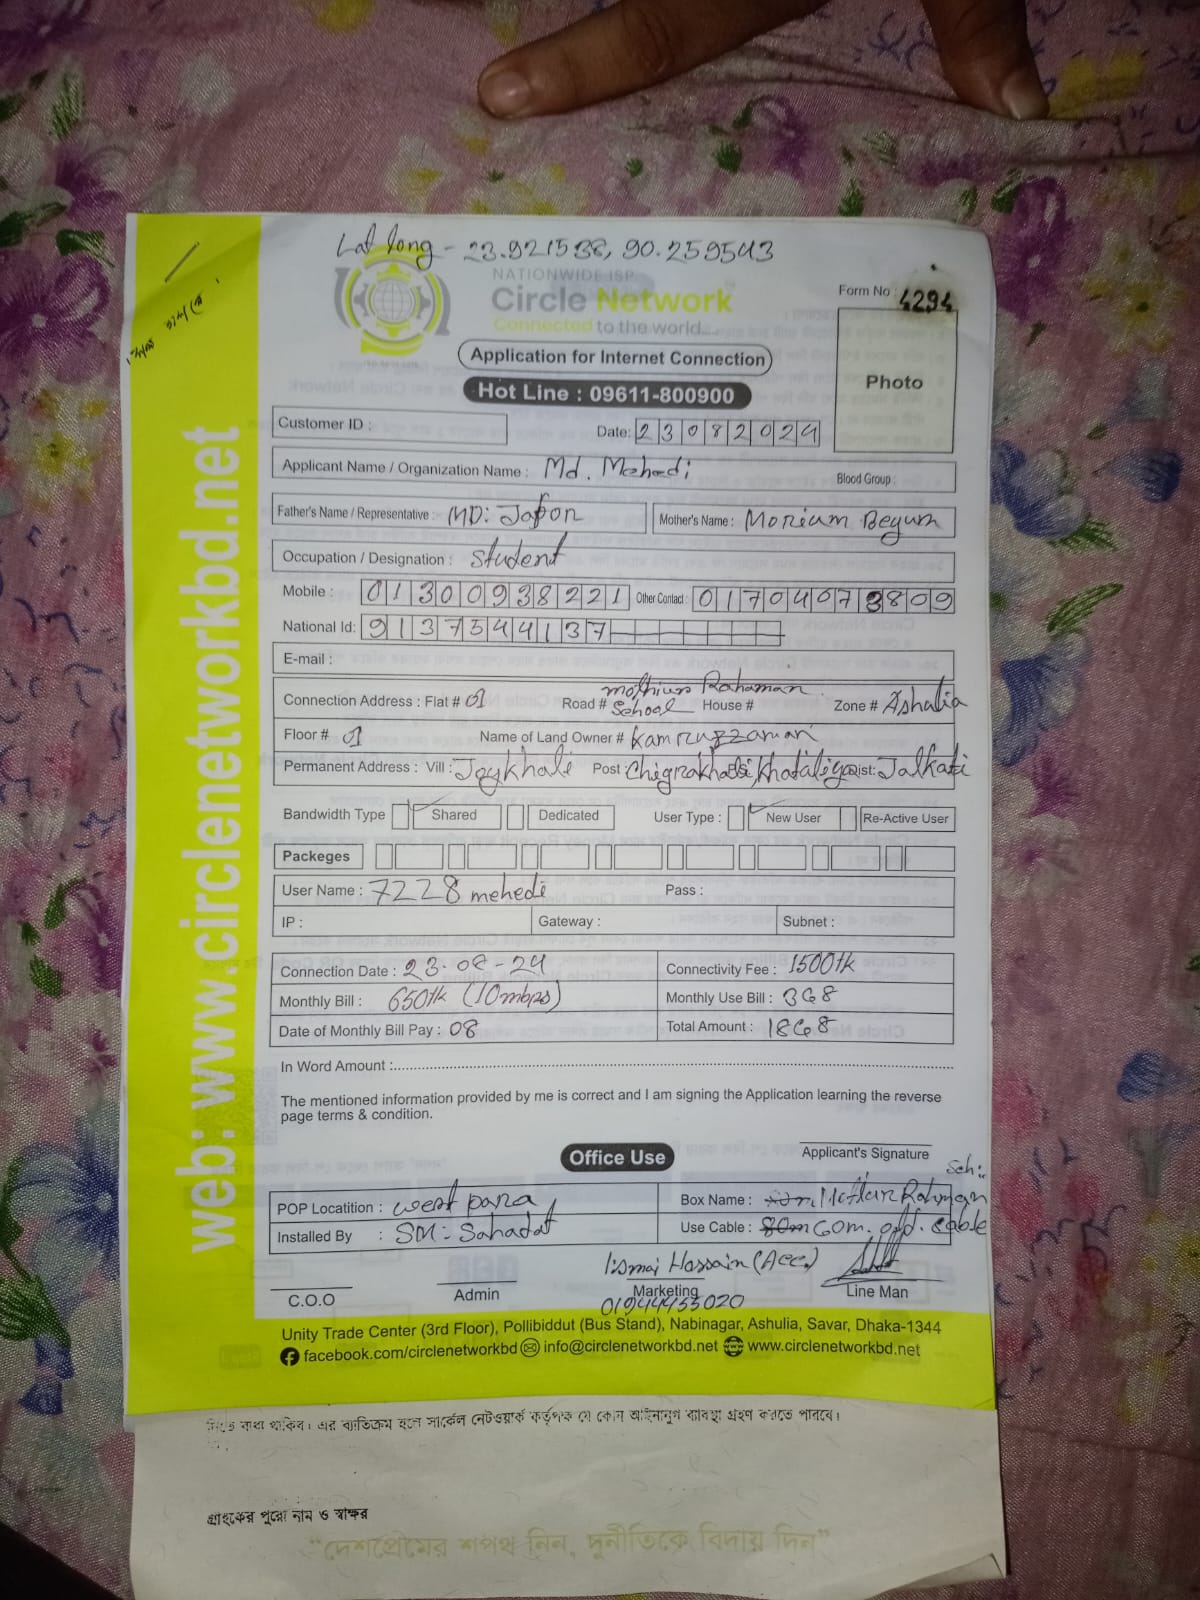 Lat long - 23.921538, 90.259543
NATIONWIDE ISP
Circle Network
Connected to the world....
Form No : 4294
Application for Internet Connection
Photo
Hot Line : 09611-800900
Customer ID :
Date: 23082024
Applicant Name / Organization Name : Md. Mehedi
Blood Group :
Father's Name / Representative : MD: Japon
Mother's Name : Morium Begum
Occupation / Designation : Student
Mobile : 01300938221 Other Contact : 01704073809
National Id: 9137544137
E-mail :
Connection Address : Flat # 01 Road # Mothiur Rahaman School House # Zone # Ashulia
Floor # 01 Name of Land Owner # Kamruzzaman
Permanent Address : Vill : Joykhali Post : Dist: Jalkati
Bandwidth Type Shared Dedicated User Type : New User Re-Active User
Packeges
User Name : 7228 mehedi Pass :
IP : Gateway : Subnet :
Connection Date : 23-08-24 Connectivity Fee : 1500tk
Monthly Bill : 650tk (10mbps) Monthly Use Bill : 368
Date of Monthly Bill Pay : 08 Total Amount : 1868
In Word Amount :
The mentioned information provided by me is correct and I am signing the Application learning the reverse
page terms & condition.
Applicant's Signature
Office Use
POP Locatition : west para Box Name : Rahman Sch:
Installed By : SM: Sahadat Use Cable : 60m. old. cable
Hossain (Acc.)
C.O.O Admin Marketing Line Man
01944455020
Unity Trade Center (3rd Floor), Pollibiddut (Bus Stand), Nabinagar, Ashulia, Savar, Dhaka-1344
facebook.com/circlenetworkbd info@circlenetworkbd.net www.circlenetworkbd.net
web: www.circlenetworkbd.net
বাধ্য থাকিব। এর ব্যতিক্রম হলে সার্কেল নেটওয়ার্ক কর্তৃপক্ষ যে কোন আইনানুগ ব্যবস্থা গ্রহণ করতে পারবে।
গ্রাহকের পুরো নাম ও স্বাক্ষর
“দেশপ্রেমের শপথ নিন, দুর্নীতিকে বিদায় দিন”